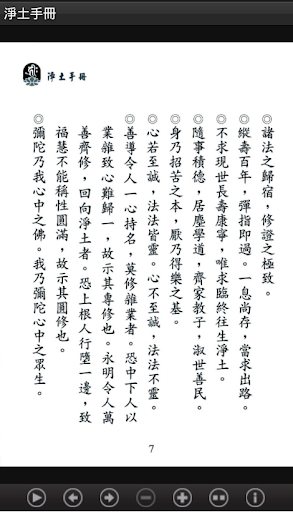 淨土手冊
淨土手冊
◎諸法之歸宿，修證之極致。
◎縱壽百年，彈指即過。一息尚存，當求出路。
◎不求現世長壽康寧，唯求臨終往生淨土。
◎隨事積德，居塵學道，齊家教子，淑世善民。
◎身乃招苦之本，厭乃得樂之基。
◎心若至誠，法法皆靈。心不至誠，法法不靈。
◎善導令人一心持名，莫修雜業者。恐中下人以
業雜致心難歸一，故示其專修也。永明令人萬
善齊修，回向淨土者。恐上根人行墮一邊，致
福慧不能稱性圓滿，故示其圓修也。
◎彌陀乃我心中之佛。我乃彌陀心中之眾生。
7